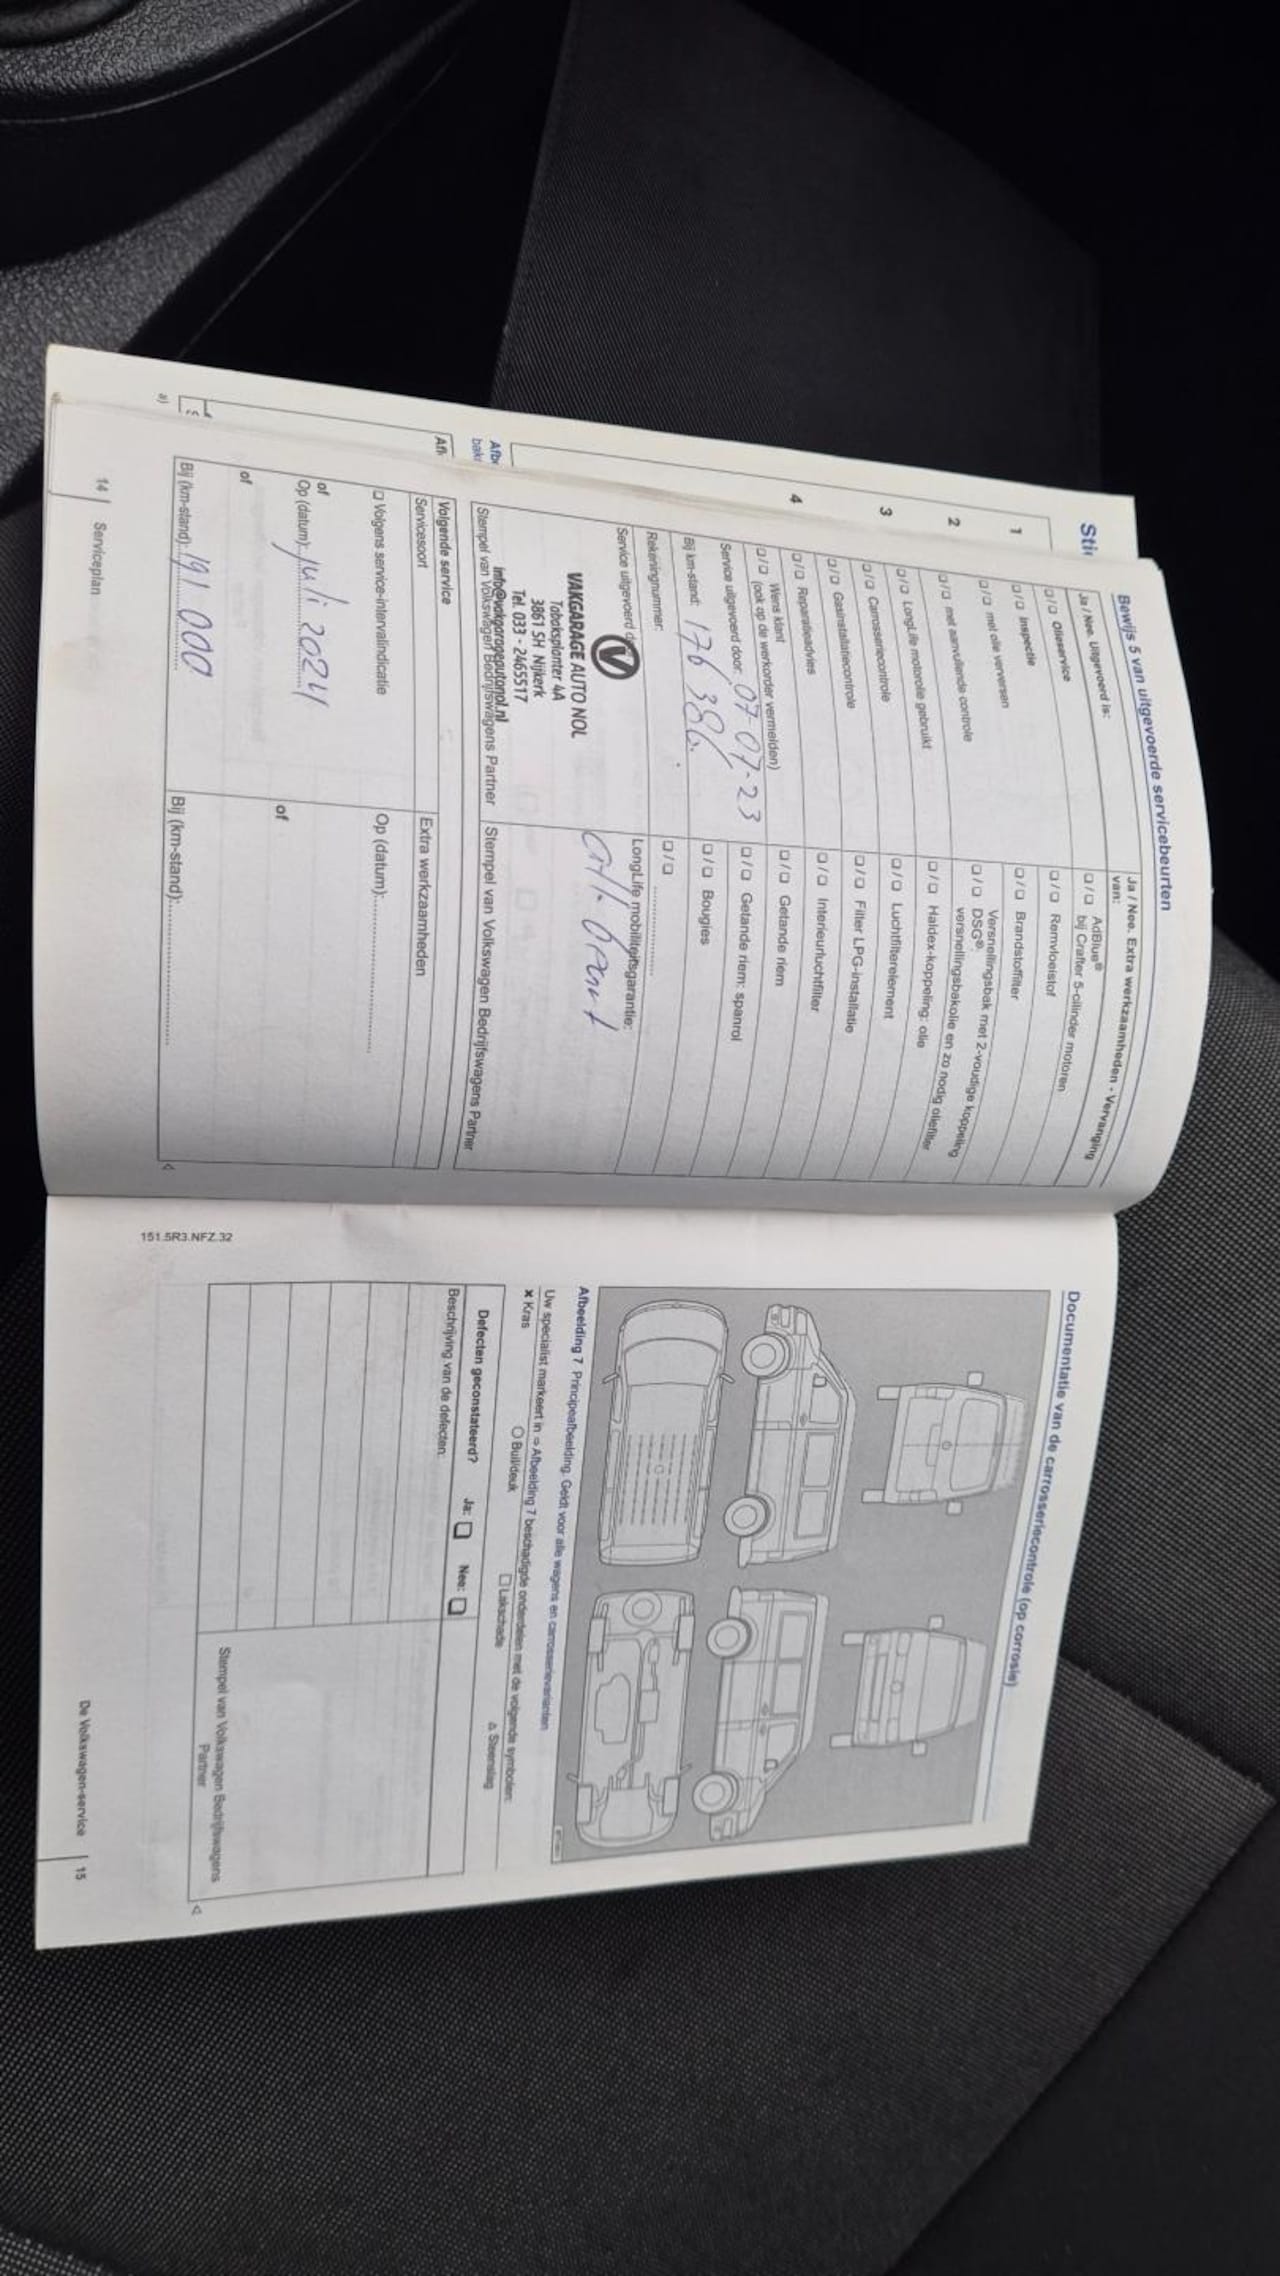 Sti
1
2
3
4
Afb
bak
Afl
a)
Bewijs 5 van uitgevoerde servicebeurten
Ja / Nee. Uitgevoerd is:
❑/❑ Olieservice
❑/❑ Inspectie
❑/❑ met olie verversen
❑/❑ met aanvullende controle
❑/❑ LongLife motorolie gebruikt
❑/❑ Carrosseriecontrole
❑/❑ Gasinstallatiecontrole
❑/❑ Reparatieadvies
❑/❑ Wens klant
(ook op de werkorder vermelden)
Service uitgevoerd door: 07-07-23
Bij km-stand: 176 386.
Rekeningnummer:
Service uitgevoerd d
VAKGARAGE AUTO NOL
Tabaksplanter 4A
3861 SH Nijkerk
Tel. 033 - 2465517
info@vakgarageautonol.nl
Stempel van Volkswagen Bedrijfswagens Partner
Ja / Nee. Extra werkzaamheden - Vervanging
van:
❑/❑ AdBlue®
bij Crafter 5-cilinder motoren
❑/❑ Remvloeistof
❑/❑ Brandstoffilter
❑/❑ Versnellingsbak met 2-voudige koppeling
DSG®:
versnellingsbakolie en zo nodig oliefilter
❑/❑ Haldex-koppeling: olie
❑/❑ Luchtfilterelement
❑/❑ Filter LPG-installatie
❑/❑ Interieurluchtfilter
❑/❑ Getande riem
❑/❑ Getande riem: spanrol
❑/❑ Bougies
❑/❑ ....................
LongLife mobiliteitsgarantie:
Stempel van Volkswagen Bedrijfswagens Partner
Volgende service
Servicesoort
❑ Volgens service-intervalindicatie
of
Op (datum): juli 2024
of
Bij (km-stand): 191 000
Extra werkzaamheden
Op (datum):....................
of
Bij (km-stand):....................
14 | Serviceplan
Documentatie van de carrosseriecontrole (op corrosie)
Afbeelding 7 Principeafbeelding. Geldt voor alle wagens en carrosserievarianten
Uw specialist markeert in ⇨ Afbeelding 7 beschadigde onderdelen met de volgende symbolen:
✖ Kras
○ Buil/deuk
□ Lakschade
△ Steenslag
Defecten geconstateerd? Ja: ❑ Nee: ❑
Beschrijving van de defecten:
Stempel van Volkswagen Bedrijfswagens
Partner
151.5R3.NFZ.32
De Volkswagen-service | 15